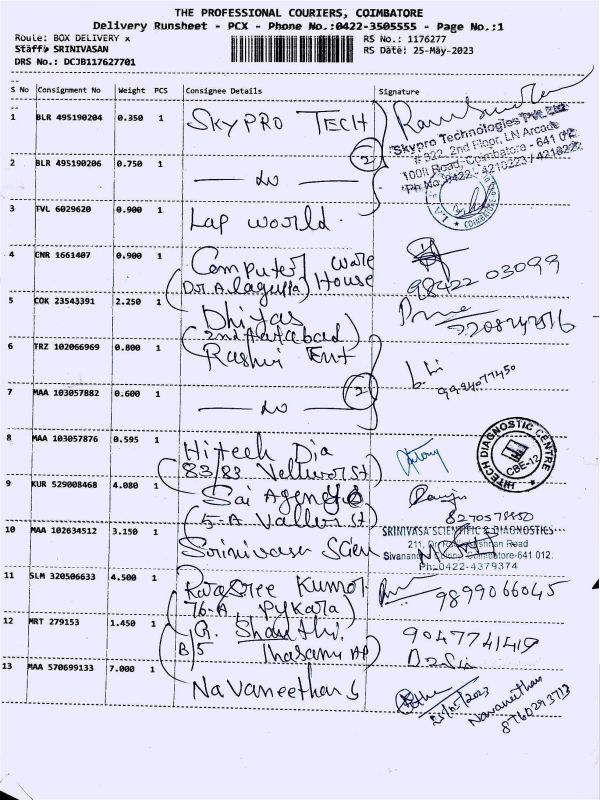 THE PROFESSIONAL COURIERS, COIMBATORE
Delivery Runsheet - PCX - Phone No.:0422-3505555 - Page No.:1
Route: BOX DELIVERY x
RS No.: 1176277
Staff: SRINIVASAN
RS Date: 25-May-2023
DRS No.: DCJB117627701
S No Consignment No Weight PCS Consignee Details Signature
1 BLR 495190204 0.350 1 SKYPRO TECH
Skypro Technologies Pvt Ltd
# 932, 2nd Floor, LN Arcade
100ft Road, Coimbatore - 641 012
Ph No.0422 - 4210223 / 4218222
2 BLR 495190206 0.750 1 — do — 2
3 TVL 6029620 0.900 1 Lap world.
COIMBATORE
4 CNR 1661407 0.900 1 Computer Ware House
(Dr. A.lagappa)
98422 03099
5 COK 23543391 2.250 1 Dhiyas
6 TRZ 102066969 0.800 1 Rashi Ent
9994077450
7 MAA 103057882 0.600 1 — do — 2
8 MAA 103057876 0.595 1 Hitech Dia
HITECH DIAGNOSTIC CENTRE
CBE-12
9 KUR 529008468 4.080 1 Sai Agency
(5-A
10 MAA 102634512 3.150 1 Srinivasa Scien
SRINIVASA SCIENTIFIC & DIAGNOSTICS
211, Road
Colony Coimbatore-641 012.
Ph: 0422-4379374
11 SLM 320506633 4.500 1 Rajasree Kumar
76-A, Pykara)
9899066045
12 MRT 279153 1.450 1 G. Shanthi.
B/5
9047741419
13 MAA 570699133 7.000 1 Navaneethan S
25/05/2023
Navaneethan
8760293713